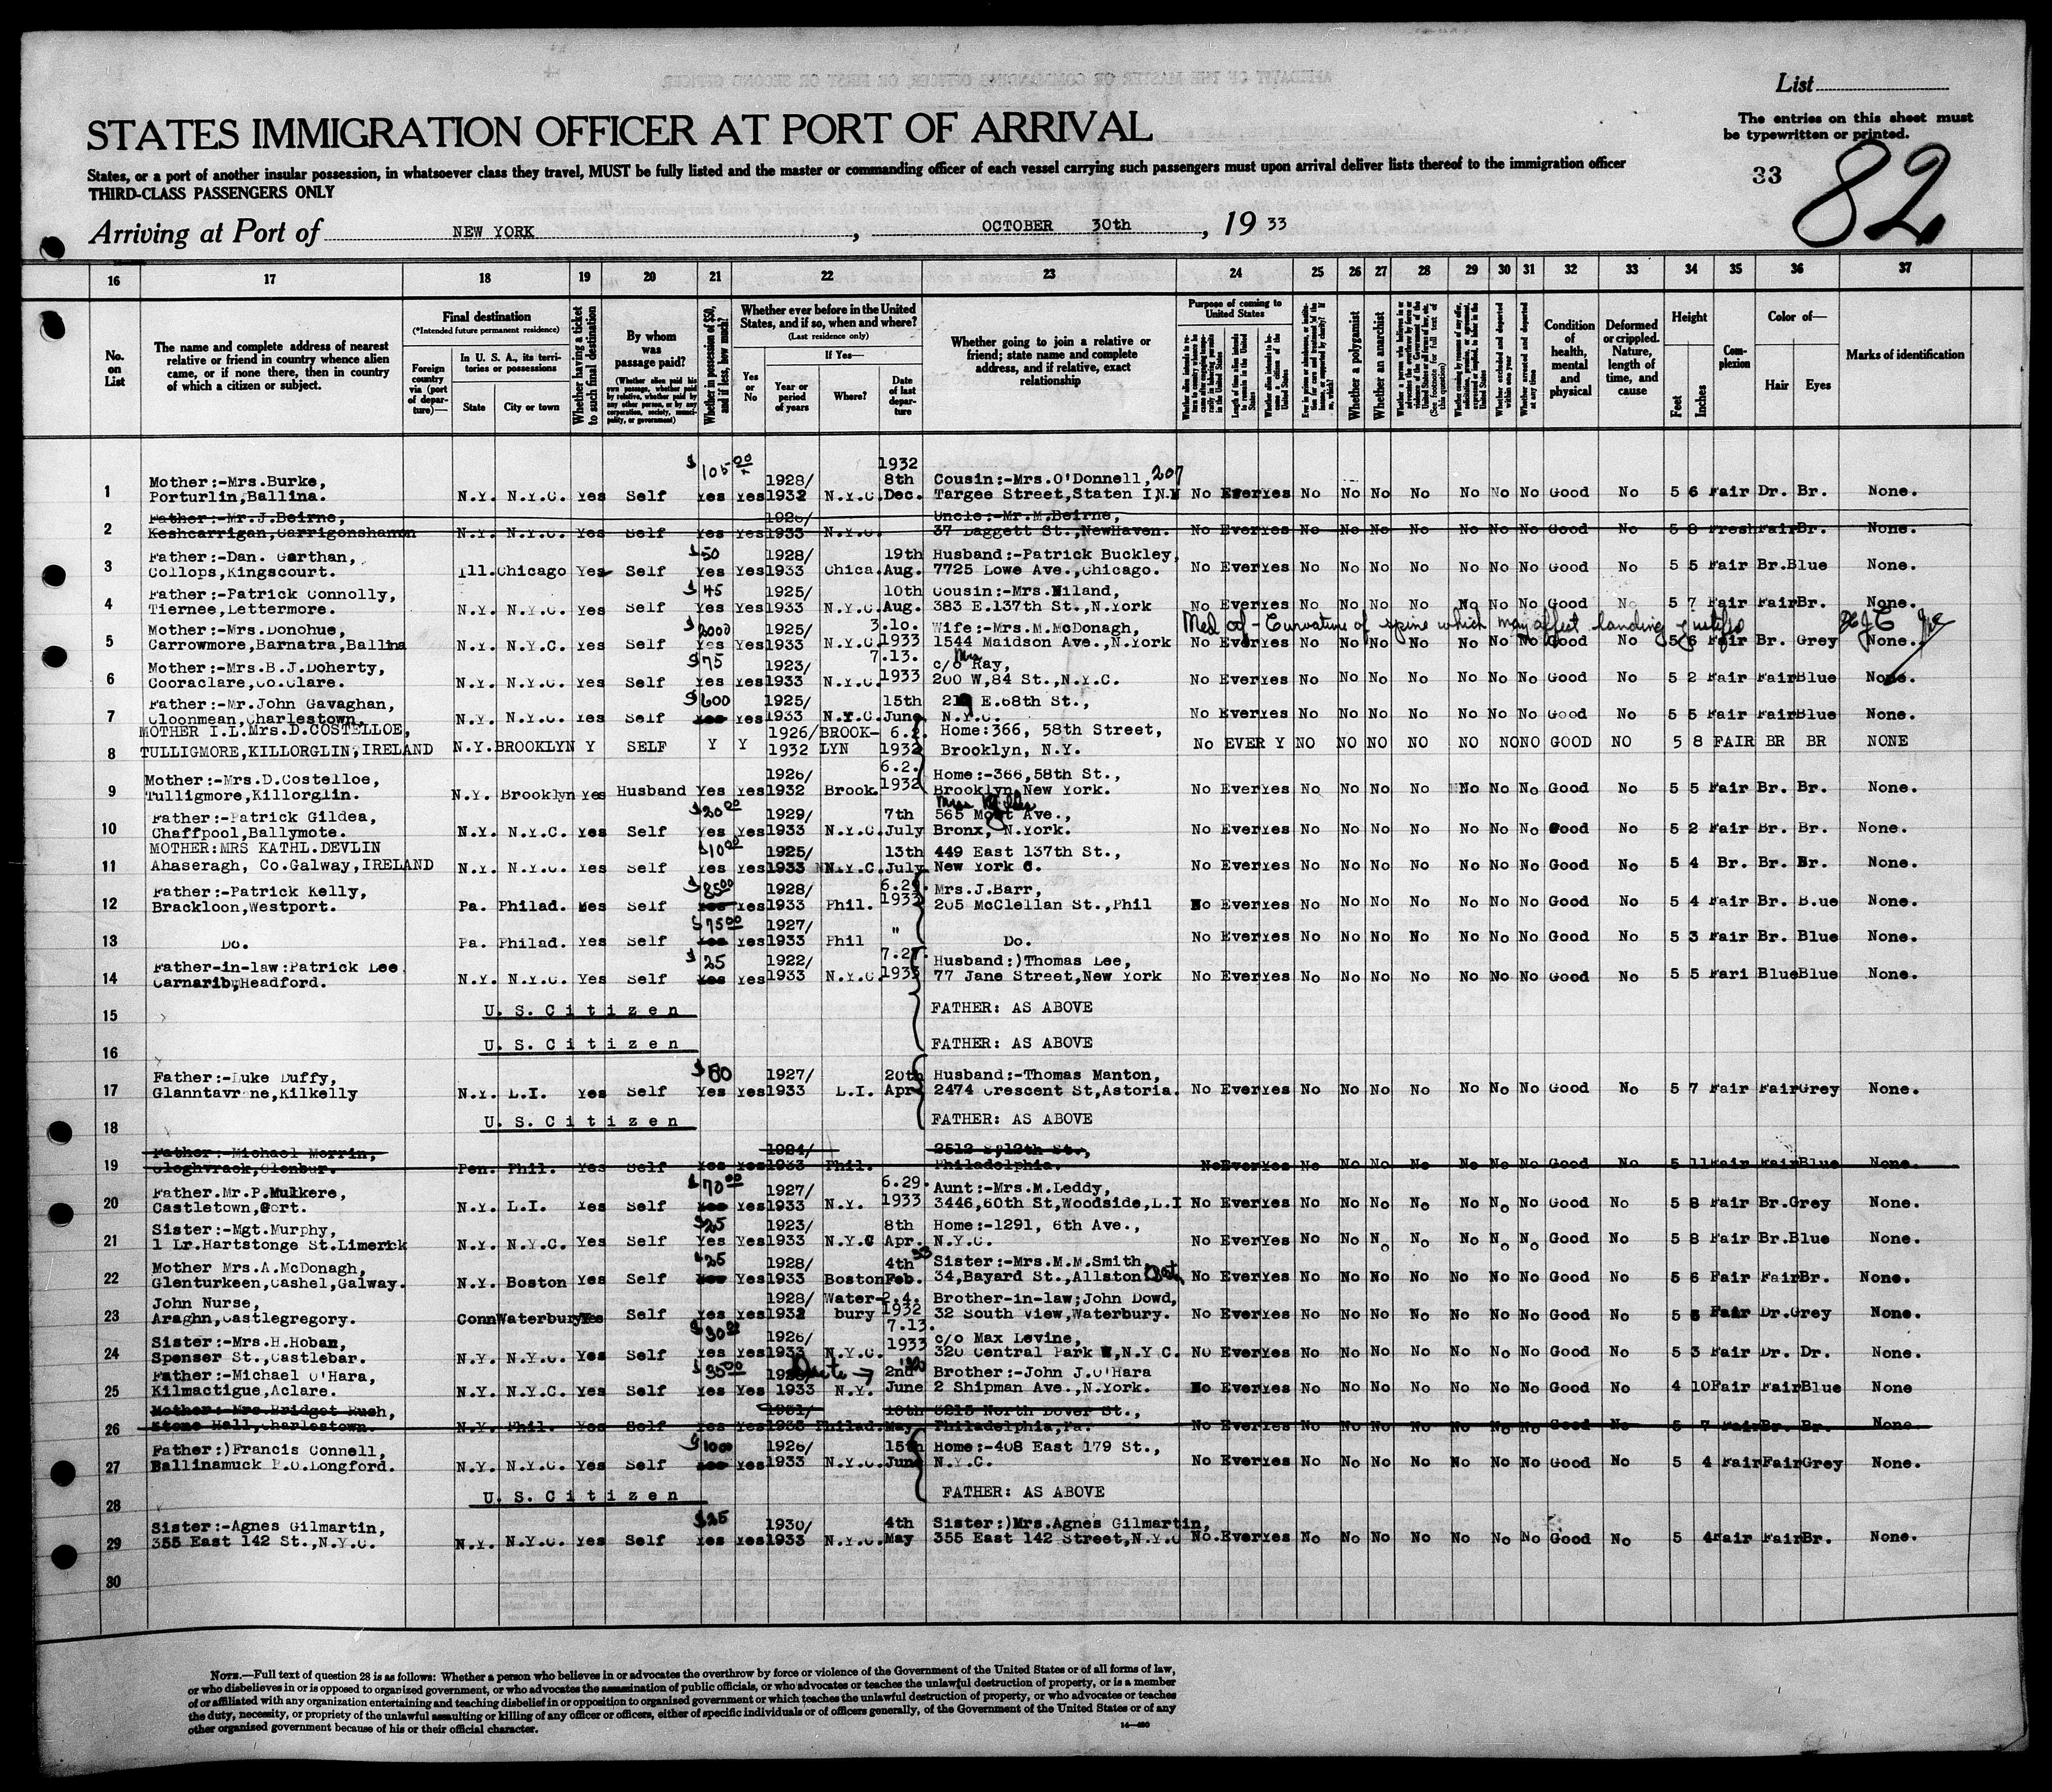 List
STATES IMMIGRATION OFFICER AT PORT OF ARRIVAL
The entries on this sheet must
be typewritten or printed.
States, or a port of another insular possession, in whatsoever class they travel, MUST be fully listed and the master or commanding officer of each vessel carrying such passengers must upon arrival deliver lists thereof to the immigration officer
THIRD-CLASS PASSENGERS ONLY
33
82
Arriving at Port of NEW YORK , OCTOBER 30th , 19 33
16 17 18 19 20 21 22 23 24 25 26 27 28 29 30 31 32 33 34 35 36 37
No. on List
The name and complete address of nearest relative or friend in country whence alien came, or if none there, then in country of which a citizen or subject.
Final destination
(*Intended future permanent residence)
Foreign country via (port of departure)—
In U. S. A., its territories or possessions
State City or town
Whether having a ticket to such final destination
By whom was passage paid?
(Whether alien paid his own passage, whether paid by relative, whether paid by any other person, or by any corporation, society, municipality, or government)
Whether in possession of $50, and if less, how much?
Whether ever before in the United States, and if so, when and where?
(Last residence only)
If Yes—
Yes or No
Year or period of years
Where?
Date of last departure
Whether going to join a relative or friend; state name and complete address, and if relative, exact relationship
Purpose of coming to United States
Length of time alien intends to remain in the United States
Whether a polygamist
Whether an anarchist
Whether arrested and deported at any time
Condition of health, mental and physical
Deformed or crippled. Nature, length of time, and cause
Height
Feet Inches
Complexion
Color of—
Hair Eyes
Marks of identification
$105.00 1932
Mother:-Mrs.Burke, 1928/ 8th Cousin:-Mrs.O'Donnell, 207
1 Porturlin,Ballina. N.Y. N.Y.C. Yes Self Yes Yes 1932 N.Y.C. Dec. Targee Street,Staten I,N.Y No Ever Yes No No No No No No No Good No 5 6 Fair Dr. Br. None.
Father:-Mr.J.Beirne, 1926/ Uncle:-Mr.M.Beirne,
2 Keshcarrigan,Carrigonshannon N.Y. N.Y.C. Yes Self Yes Yes 1933 N.Y.C. 37 Daggett St.,NewHaven. No Ever Yes No No No No No No No Good No 5 8 Fresh Fair Br. None.
Father:-Dan. Garthan, $50 1928/ 19th Husband:-Patrick Buckley,
3 Collops,Kingscourt. Ill. Chicago Yes Self Yes Yes 1933 Chica. Aug. 7725 Lowe Ave.,Chicago. No Ever Yes No No No No No No No Good No 5 5 Fair Br. Blue None.
Father:-Patrick Connolly, $45 1925/ 10th Cousin:-Mrs.Niland,
4 Tiernee,Lettermore. N.Y. N.Y.C. Yes Self Yes Yes 1933 N.Y.C. Aug. 383 E.137th St.,N.York No Ever Yes No No No No No No No Good No 5 7 Fair Fair Br. None.
Mother:-Mrs.Donohue, $2000 1925/ 3.10. Wife:-Mrs.M.McDonagh, Med of - Curvature of spine which may affect landing
5 Carrowmore,Barnatra,Ballina N.Y. N.Y.C Yes Self Yes Yes 1933 N.Y.C. 1933 1544 Maidson Ave.,N.York No Ever Yes No No No No No No No Good No 5 6 Fair Br. Grey None.
Mother:-Mrs.B.J.Doherty, $75 1923/ 7.13. c/o Mrs Ray,
6 Cooraclare,Co.Clare. N.Y. N.Y.C. Yes Self Yes Yes 1933 N.Y.C. 1933 200 W,84 St.,N.Y.C. No Ever Yes No No No No No No No Good No 5 2 Fair Fair Blue None.
Father:-Mr.John Gavaghan, $600 1925/ 15th E.68th St.,
7 Cloonmean,Charlestown, N.Y. N.Y.C. Yes Self Yes Yes 1933 N.Y.C. June N.Y.C. No Ever Yes No No No No No No No Good No 5 5 Fair Fair Blue None.
MOTHER I.L.Mrs.D.COSTELLOE, 1926/ BROOK- 6.2. Home:366, 58th Street,
8 TULLIGMORE,KILLORGLIN,IRELAND N.Y. BROOKLYN Y SELF Y Y 1932 LYN 1932 Brooklyn, N.Y. No EVER Y NO NO NO NO NO NO NO GOOD NO 5 8 FAIR BR BR NONE
Mother:-Mrs.D.Costelloe, 1926/ 6.2. Home:-366,58th St.,
9 Tulligmore,Killorglin. N.Y. Brooklyn Yes Husband Yes Yes 1932 Brook. 1932 Brooklyn,New York. No Ever Yes No No No No No No No Good No 5 5 Fair Br. Br. None.
Father:-Patrick Gildea, $20.00 1929/ 7th 565 Mott Ave.,
10 Chaffpool,Ballymote. N.Y. N.Y.C. Yes Self Yes Yes 1933 N.Y.C. July Bronx, N.York. No Ever Yes No No No No No No No Good No 5 2 Fair Br. Br. None.
MOTHER:MRS KATHL.DEVLIN $10.00 1925/ 13th 449 East 137th St.,
11 Ahaseragh, Co.Galway,IRELAND N.Y. N.Y.C. Yes Self Yes Yes 1933 N.Y.C. July New York C. No Ever Yes No No No No No No No Good No 5 4 Br. Br. Br. None.
Father:-Patrick Kelly, $85.00 1928/ 6.29. Mrs.J.Barr,
12 Brackloon,Westport. Pa. Philad. Yes Self Yes Yes 1933 Phil. 1933 205 McClellan St.,Phil No Ever Yes No No No No No No No Good No 5 4 Fair Br. Blue None.
$75.00 1927/
13 Do. Pa. Philad. Yes Self Yes Yes 1933 Phil " Do. No Ever Yes No No No No No No No Good No 5 3 Fair Br. Blue None.
Father-in-law:Patrick Lee $25 1922/ 7.27. Husband:)Thomas Lee,
14 Headford. N.Y. N.Y.C. Yes Self Yes Yes 1933 N.Y.C. 1933 77 Jane Street,New York No Ever Yes No No No No No No No Good No 5 5 Fari Blue Blue None.
15 U. S. C i t i z e n FATHER: AS ABOVE
16 U. S. C i t i z e n FATHER: AS ABOVE
Father:-Luke Duffy, 1927/ 20th Husband:-Thomas Manton,
17 Glanntavr ne,Kilkelly N.Y. L.I. Yes Self Yes Yes 1933 L.I. Apr 2474 Crescent St,Astoria. No Ever Yes No No No No No No No Good No 5 7 Fair Fair Grey None.
18 U. S. C i t i z e n FATHER: AS ABOVE
Father:-Michael Morrin, 1924/ 2512 St.,
19 Cloghvrack,Clonbur. Pen. Phil. Yes Self Yes Yes 1933 Phil. Philadelphia. No Ever Yes No No No No No No No Good No 5 11 Fair Fair Blue None.
Father.Mr.P.Mulkere, $70.00 1927/ 6.29. Aunt:-Mrs.M.Leddy,
20 Castletown,Gort. N.Y. L.I. Yes Self Yes Yes 1933 N.Y. 1933 3446,60th St,Woodside,L.I No Ever Yes No No No No No No No Good No 5 8 Fair Br. Grey None.
Sister:-Mgt.Murphy, $25 1923/ 8th Home:-1291, 6th Ave.,
21 1 Lr.Hartstonge St.Limerick N.Y. N.Y.C. Yes Self Yes Yes 1933 N.Y.C Apr. N.Y.C. No Ever Yes No No No No No No No Good No 5 8 Fair Br. Blue None.
Mother Mrs.A.McDonagh, $25 1928/ 4th 33 Sister:-Mrs.M.M.Smith
22 Glenturkeen,Cashel,Galway. N.Y. Boston Yes Self Yes Yes 1933 Boston Feb. 34,Bayard St.,Allston No Ever Yes No No No No No No No Good No 5 6 Fair Fair Br. None.
John Nurse, 1928/ Water- 2.4. Brother-in-law;John Dowd,
23 Araghn,Castlegregory. Conn Waterbury Yes Self Yes Yes 1932 bury 1932 32 South View,Waterbury. No Ever Yes No No No No No No No Good No 5 Fair Dr. Grey None.
Sister:-Mrs.H.Hoban, $30.00 1926/ 7.13. c/o Max Levine,
24 Spenser St.,Castlebar. N.Y. N.Y.C. Yes Self Yes Yes 1933 N.Y.C. 1933 320 Central Park W,N.Y C. No Ever Yes No No No No No No No Good No 5 3 Fair Dr. Dr. None.
Father:-Michael O'Hara, $35.00 Date → 2nd Brother:-John J.O'Hara
25 Kilmactigue,Aclare. N.Y. N.Y.C. Yes Self Yes Yes 1933 N.Y. June 2 Shipman Ave.,N.York. No Ever Yes No No No No No No No Good No 4 10 Fair Fair Blue None
Mother:-Mrs.Bridget Rush, 1931/ 10th 6213 North Dover St.,
26 Stone Hall,Charlestown. N.Y. Phil. Yes Self Yes Yes 1933 Philad. May Philadelphia,Pa. No Ever Yes No No No No No No No Good No 5 7 Fair Br. Br. None.
Father:)Francis Connell, $1000 1926/ 15th Home:-408 East 179 St.,
27 Ballinamuck P.O.Longford. N.Y. N.Y.C. Yes Self Yes Yes 1933 N.Y.C. June N.Y.C. No Ever Yes No No No No No No No Good No 5 4 Fair Fair Grey None.
28 U. S. C i t i z e n FATHER: AS ABOVE
Sister:-Agnes Gilmartin, $25 1930/ 4th Sister:)Mrs.Agnes Gilmartin,
29 355 East 142 St.,N.Y.C. N.Y. N.Y.C. Yes Self Yes Yes 1933 N.Y.C. May 355 East 142 Street,N.Y.C No. Ever Yes No No No No No No No Good No 5 4 Fair Fair Br. None.
30
NOTE.—Full text of question 28 is as follows: Whether a person who believes in or advocates the overthrow by force or violence of the Government of the United States or of all forms of law,
or who disbelieves in or is opposed to organized government, or who advocates the assassination of public officials, or who advocates or teaches the unlawful destruction of property, or is a member
of or affiliated with any organization entertaining and teaching disbelief in or opposition to organized government or which teaches the unlawful destruction of property, or who advocates or teaches
the duty, necessity, or propriety of the unlawful assaulting or killing of any officer or officers, either of specific individuals or of officers generally, of the Government of the United States or of any
other organized government because of his or their official character.
14—480